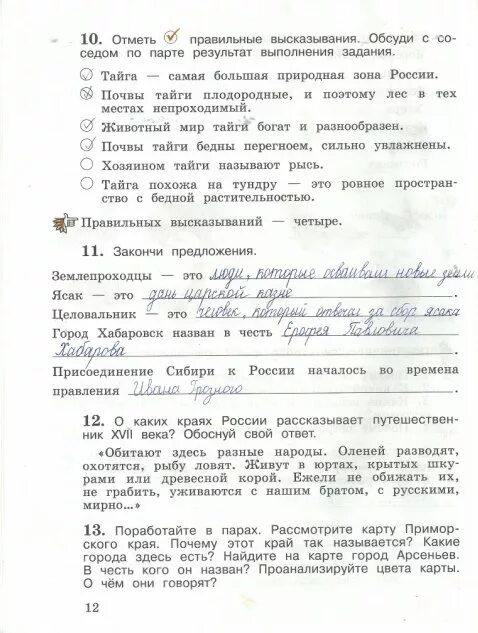 10. Отметь правильные высказывания. Обсуди с со-
седом по парте результат выполнения задания.
Тайга — самая большая природная зона России.
Почвы тайги плодородные, и поэтому лес в тех
местах непроходимый.
Животный мир тайги богат и разнообразен.
Почвы тайги бедны перегноем, сильно увлажнены.
Хозяином тайги называют рысь.
Тайга похожа на тундру — это ровное простран-
ство с бедной растительностью.
Правильных высказываний — четыре.
11. Закончи предложения.
Землепроходцы — это люди, которые осваивали новые земли.
Ясак — это дань царской казне
Целовальник — это человек, который отвечал за сбор ясака
Город Хабаровск назван в честь Ерофея Павловича
Хабарова.
Присоединение Сибири к России началось во времена
правления Ивана Грозного.
12. О каких краях России рассказывает путешествен-
ник XVII века? Обоснуй свой ответ.
«Обитают здесь разные народы. Оленей разводят,
охотятся, рыбу ловят. Живут в юртах, крытых шку-
рами или древесной корой. Ежели не обижать их,
не грабить, уживаются с нашим братом, с русскими,
мирно...»
13. Поработайте в парах. Рассмотрите карту Примор-
ского края. Почему этот край так называется? Какие
города здесь есть? Найдите на карте город Арсеньев.
В честь кого он назван? Проанализируйте цвета карты.
О чём они говорят?
12